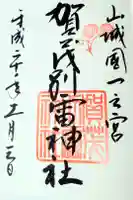 山城國一之宮
賀茂別雷神社
平成二十年十一月三日